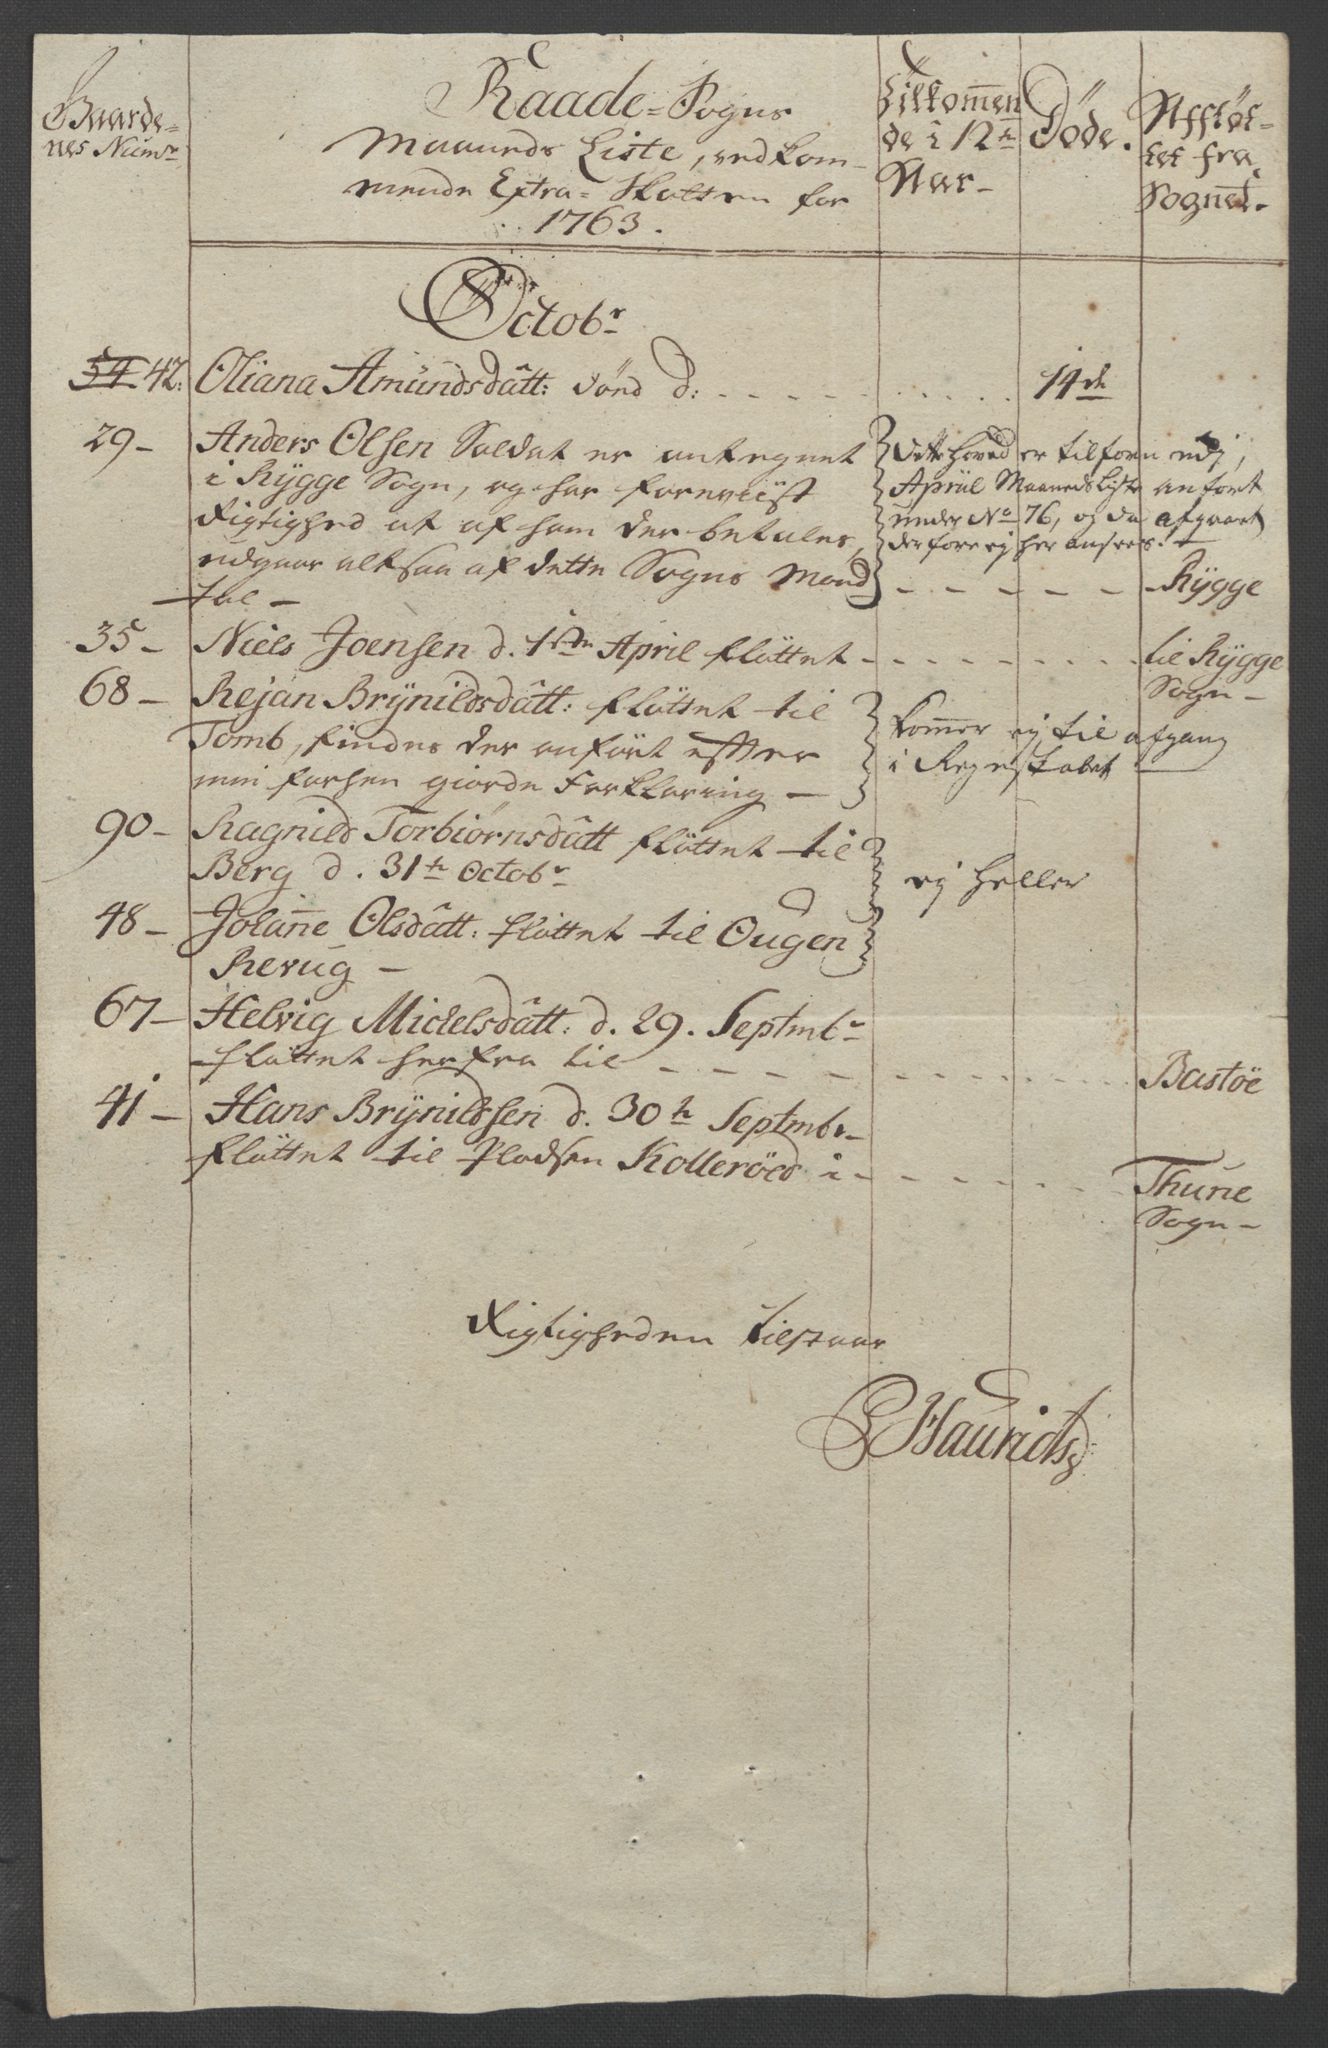 Gaarde-
nes Numr
Raade-Sogns
Maaneds Liste, vedkom-
mende Extra-Skatten for
1763.
Tilkommen
de i 12te
Aar-
Døde.
Affløt-
tet fra
Sognet.
Octobr
54 42. Oliana Amundsdatt: Død d: 14de
29- Anders Olsen Soldat er antegnet
i Rygge Sogn, og har foreviist
Rigtighed at af ham der betales,
udgaar altsaa af dette Sogns Mand
tal-
Dette hoved er tilforn udj,
Apriil Maaneds Liste anført
under No 76, og da afgaaet
derfore ej her ansees.
Rygge
35- Niels Joensen d. 1ste April fløttet
til Rygge
Sogn-
68- Rejan Brynildsdatt: fløttet til
Tomb, findes der anført efter
min forhen giorde Forklaring-
kommer ej til afgang
i Regnskabet
90- Ragnild Torbiørnsdatt fløttet til
Berg d. 31te Octobr
ej heller
48- Johanne Olsdatt: fløttet til Ougen
Rerug-
67- Helvig Mickelsdatt: d. 29. Septmbr
fløttet herfra til
Bastöe
41- Hans Brynildsen d. 30te Septmbr
fløttet til Pladsen Kolleröed i
Thune
Sogn-
Rigtigheden tilstaar
Hauritz